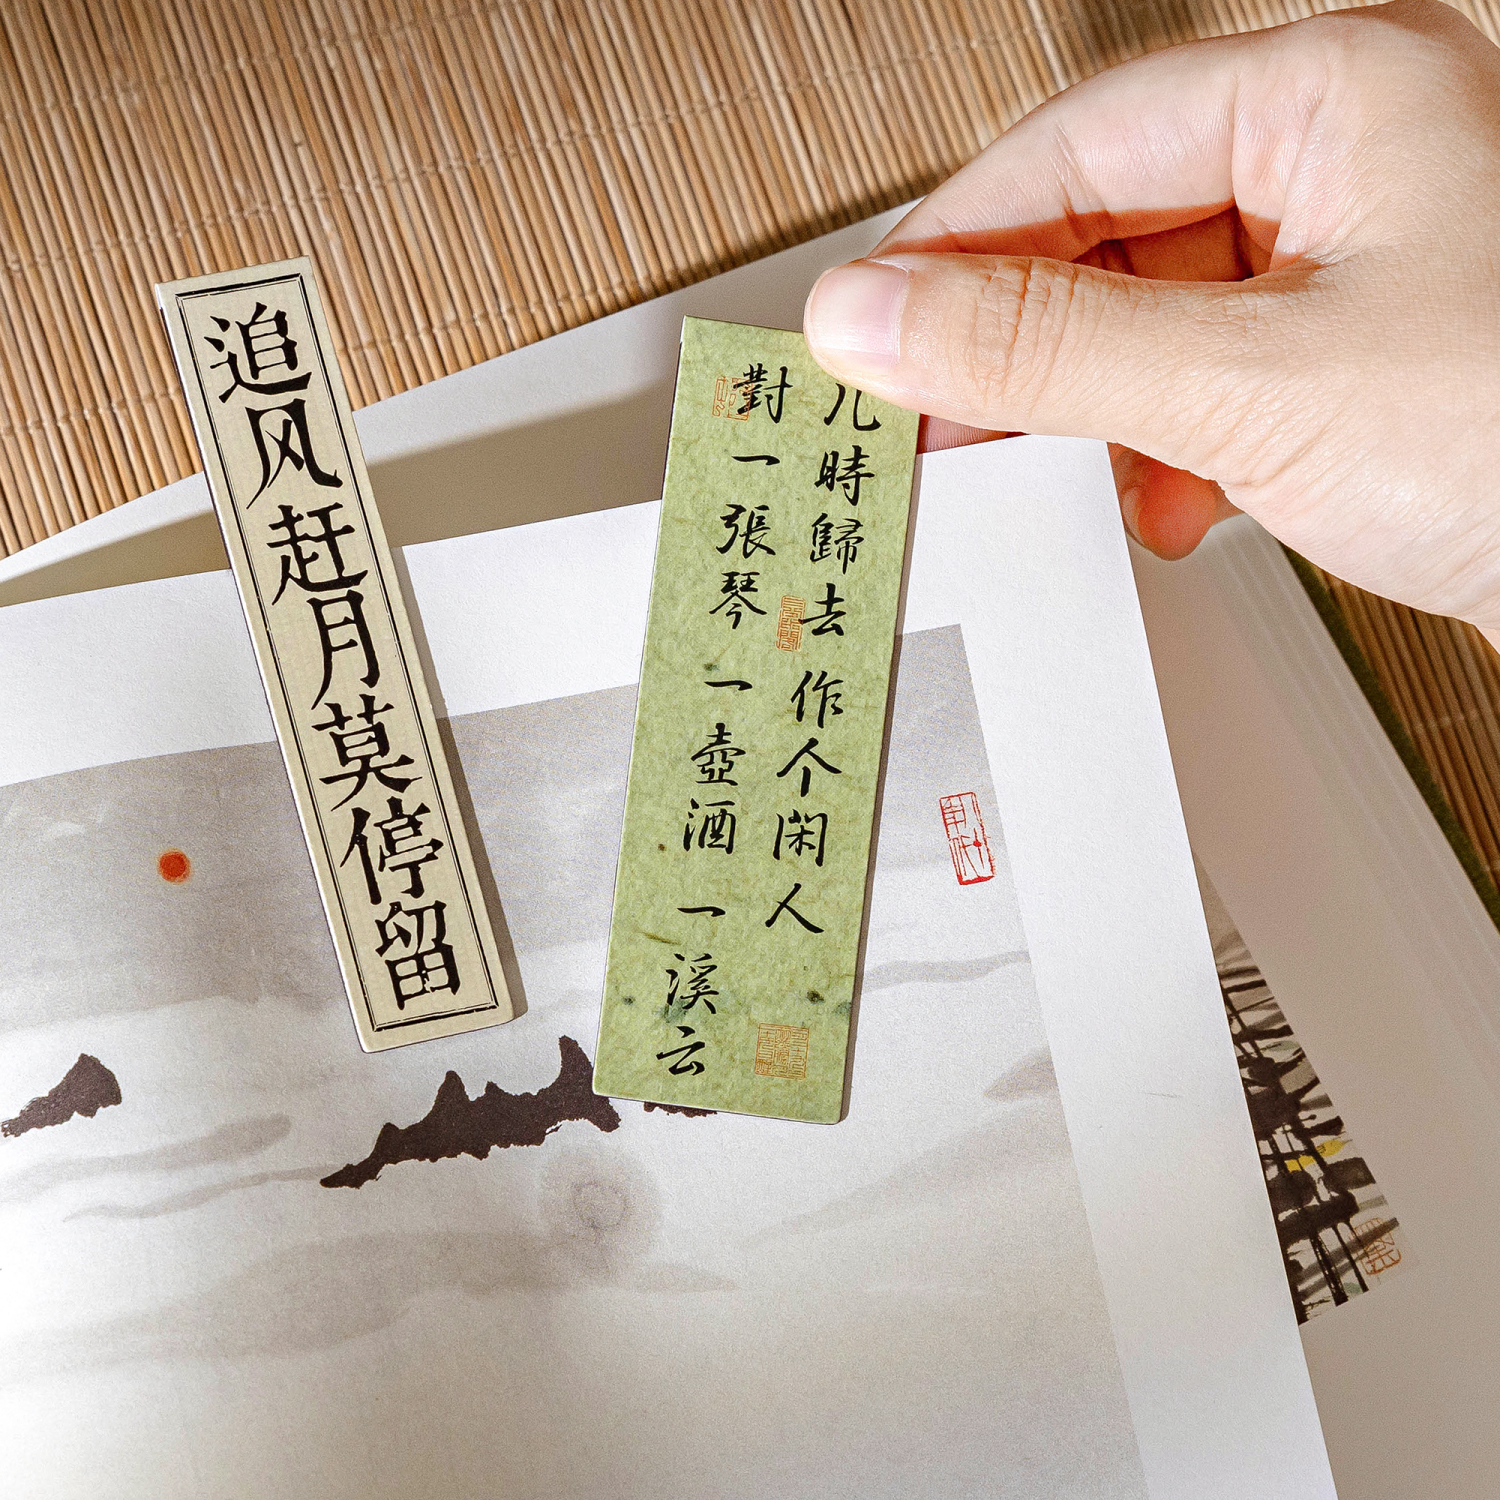 追风赶月莫停留
几時歸去 作个閑人
對一張琴 一壺酒 一溪云